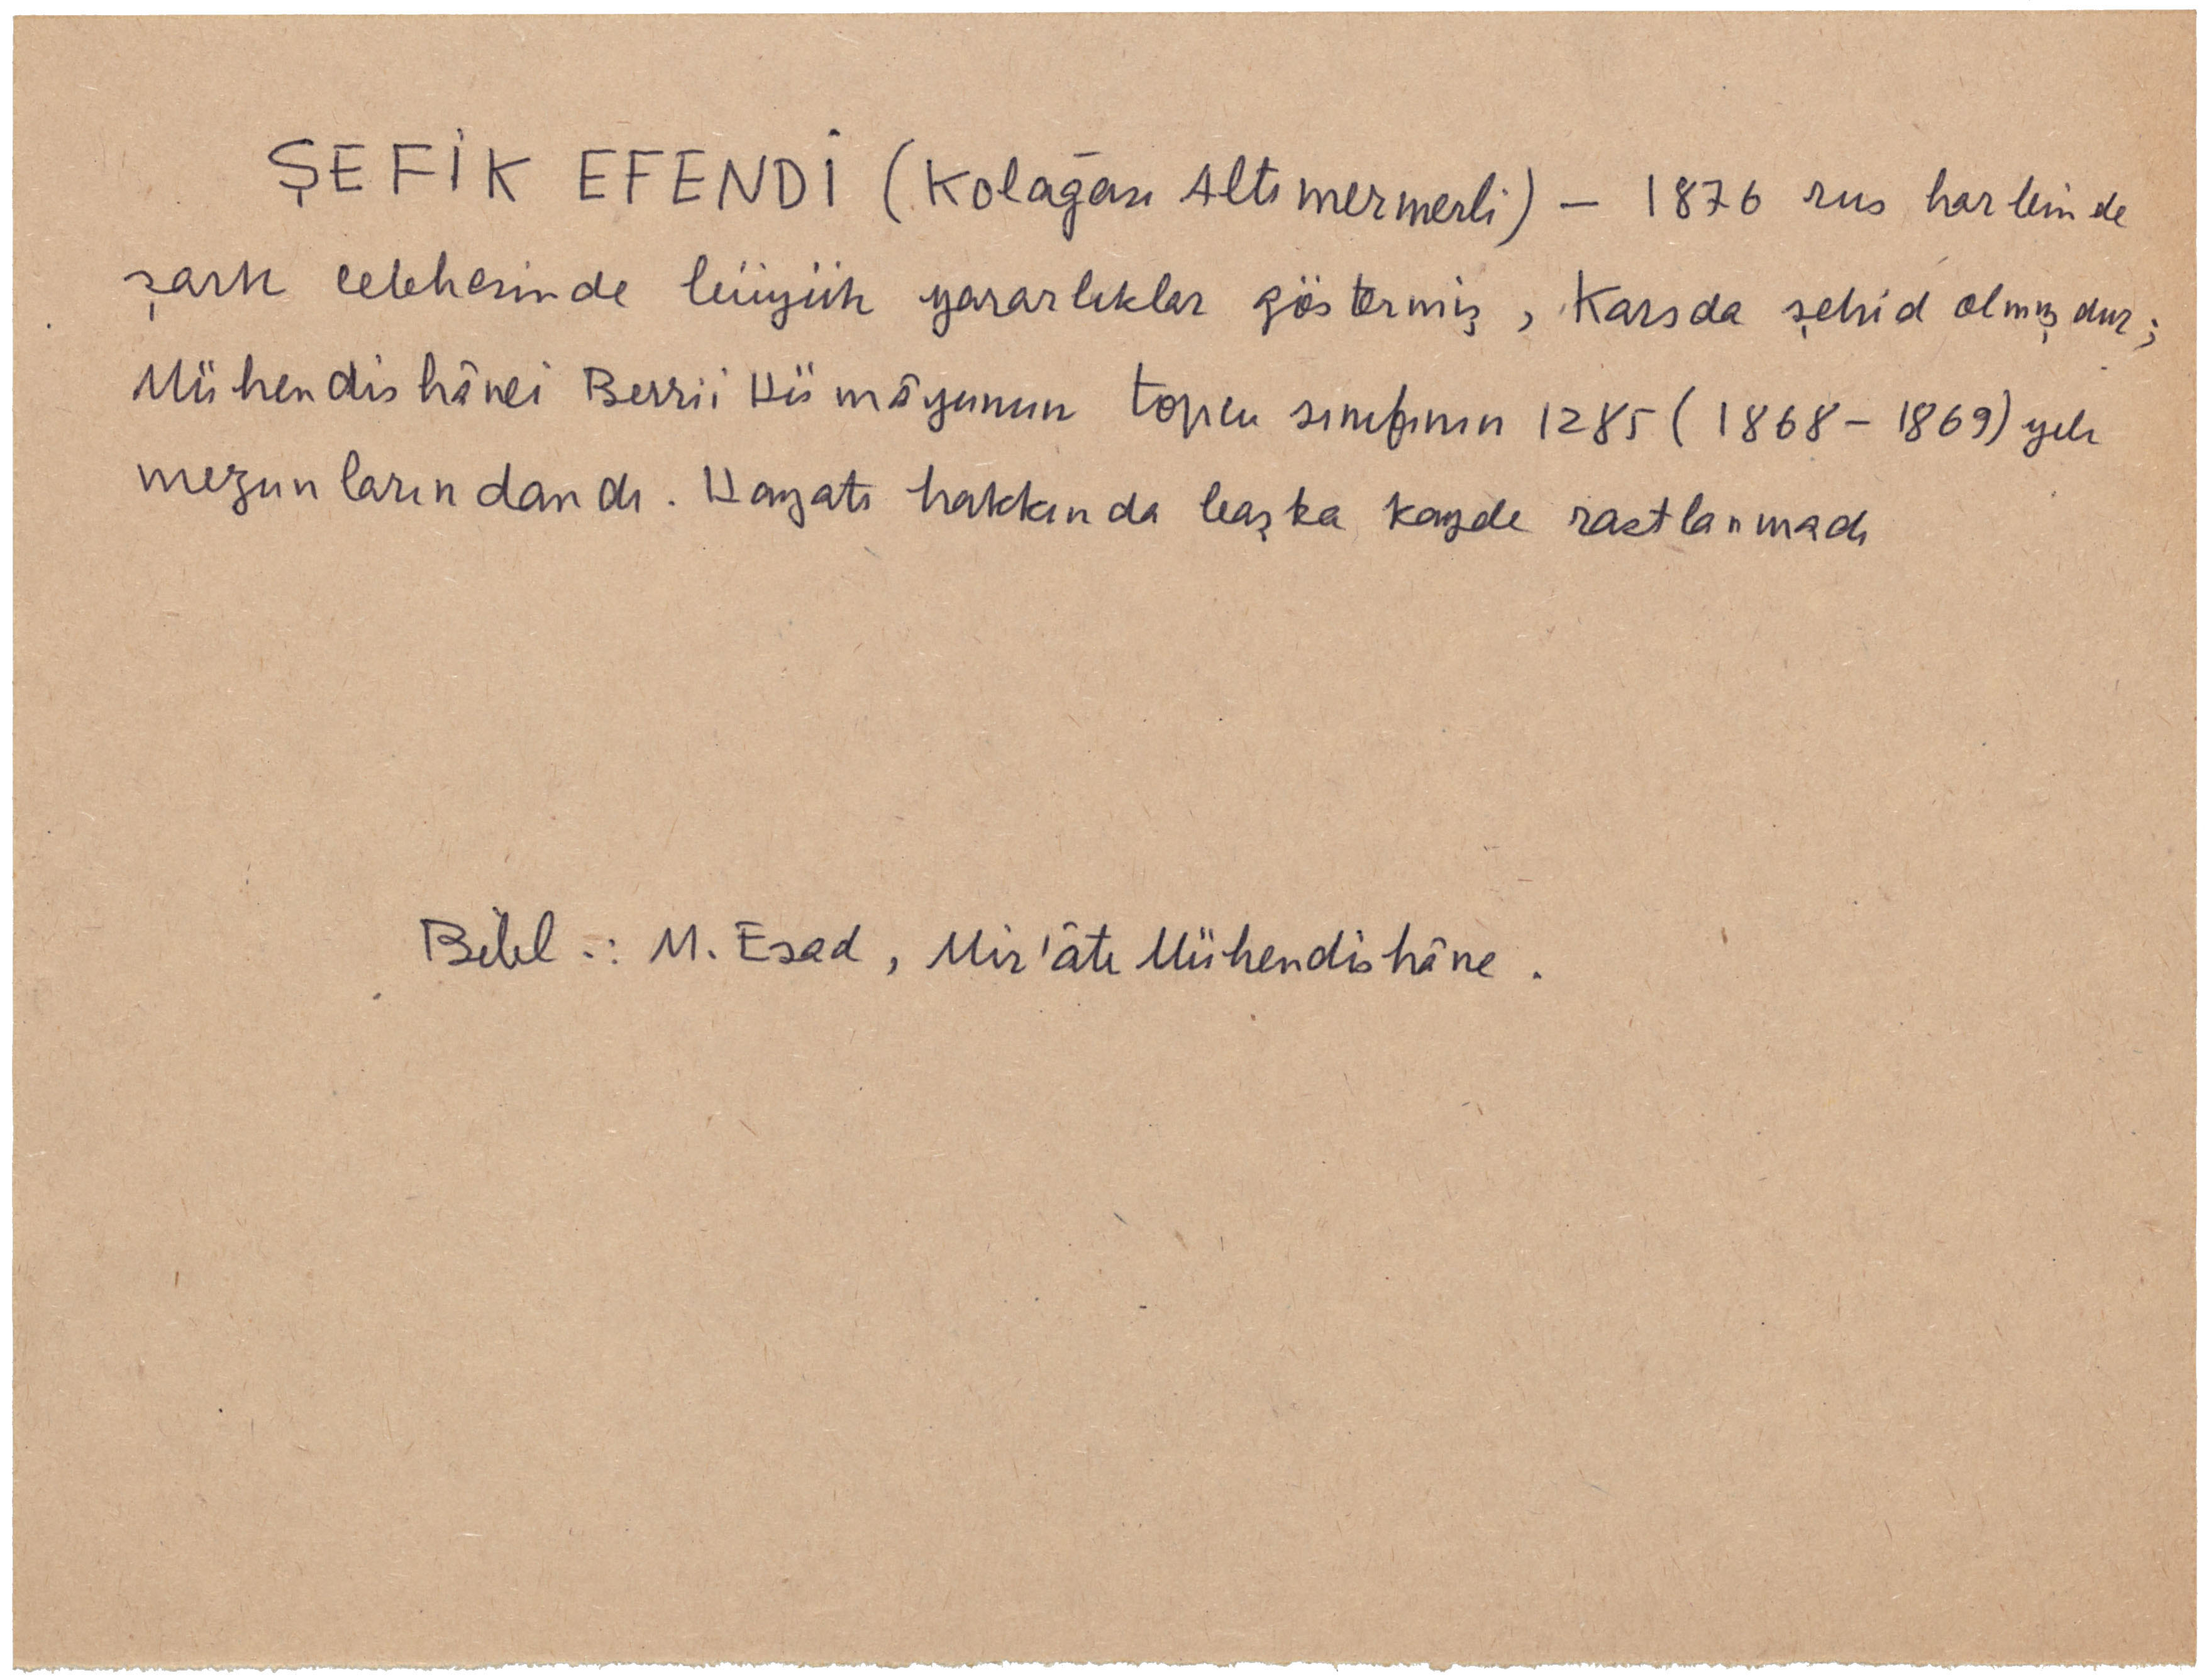 ŞEFİK EFENDİ (Kolağası Altımermerli) — 1876 rus harbinde
şark cebhesinde büyük yararlıklar göstermiş, Karsda şehid olmuşdur;
Mühendishânei Berrii Hümâyunun topcu sınıfının 1285 (1868-1869) yılı
mezunlarındandı. Hayatı hakkında başka kayde rastlanmadı
Bibl.: M. Esad, Mir'âtı Mühendishâne.